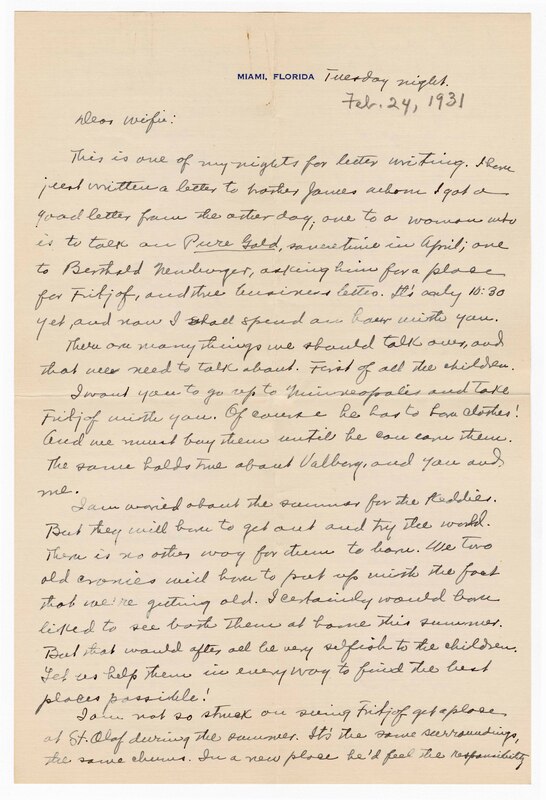 MIAMI, FLORIDA Tuesday night.
Feb. 24, 1931
Dear wifie:
This is one of my nights for letter writing. I have
just written a letter to brother James whom I got a
good letter from the other day, one to a woman who
is to talk on Pure Gold, sometime in April, one
to Berthold Newburger, asking him for a place
for Fritjof, and three business letters. It's only 10:30
yet and now I shall spend an hour with you.
There are many things we should talk over, and
that we need to talk about. First of all the children.
I want you to go up to Minneapolis and take
Fritjof with you. Of course he has to have clothes!
And we must buy them untill he can earn them.
The same holds true about Valborg, and you and
me.
I am woried about the summer for the Keddies.
But they will have to get out and try the world.
There is no other way for them to learn. We two
old cronies will have to put up with the fact
that we're getting old. I certainly would have
liked to see both them at home this summer.
But that would after all be very selfish to the children.
Let us help them in every way to find the best
places possible!
I am not so struck on seeing Fritjof get a place
at St. Olaf during the summer. It's the same surroundings,
the same chums. In a new place he'd feel the responsibility